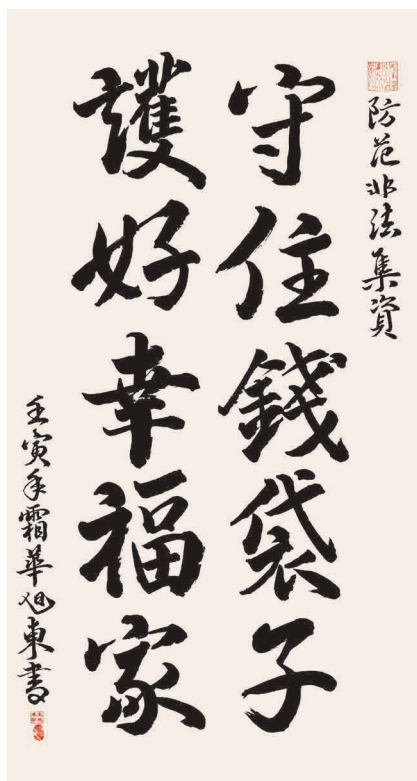 防范非法集資
守住錢袋子
護好幸福家
壬寅年霜華旭東書